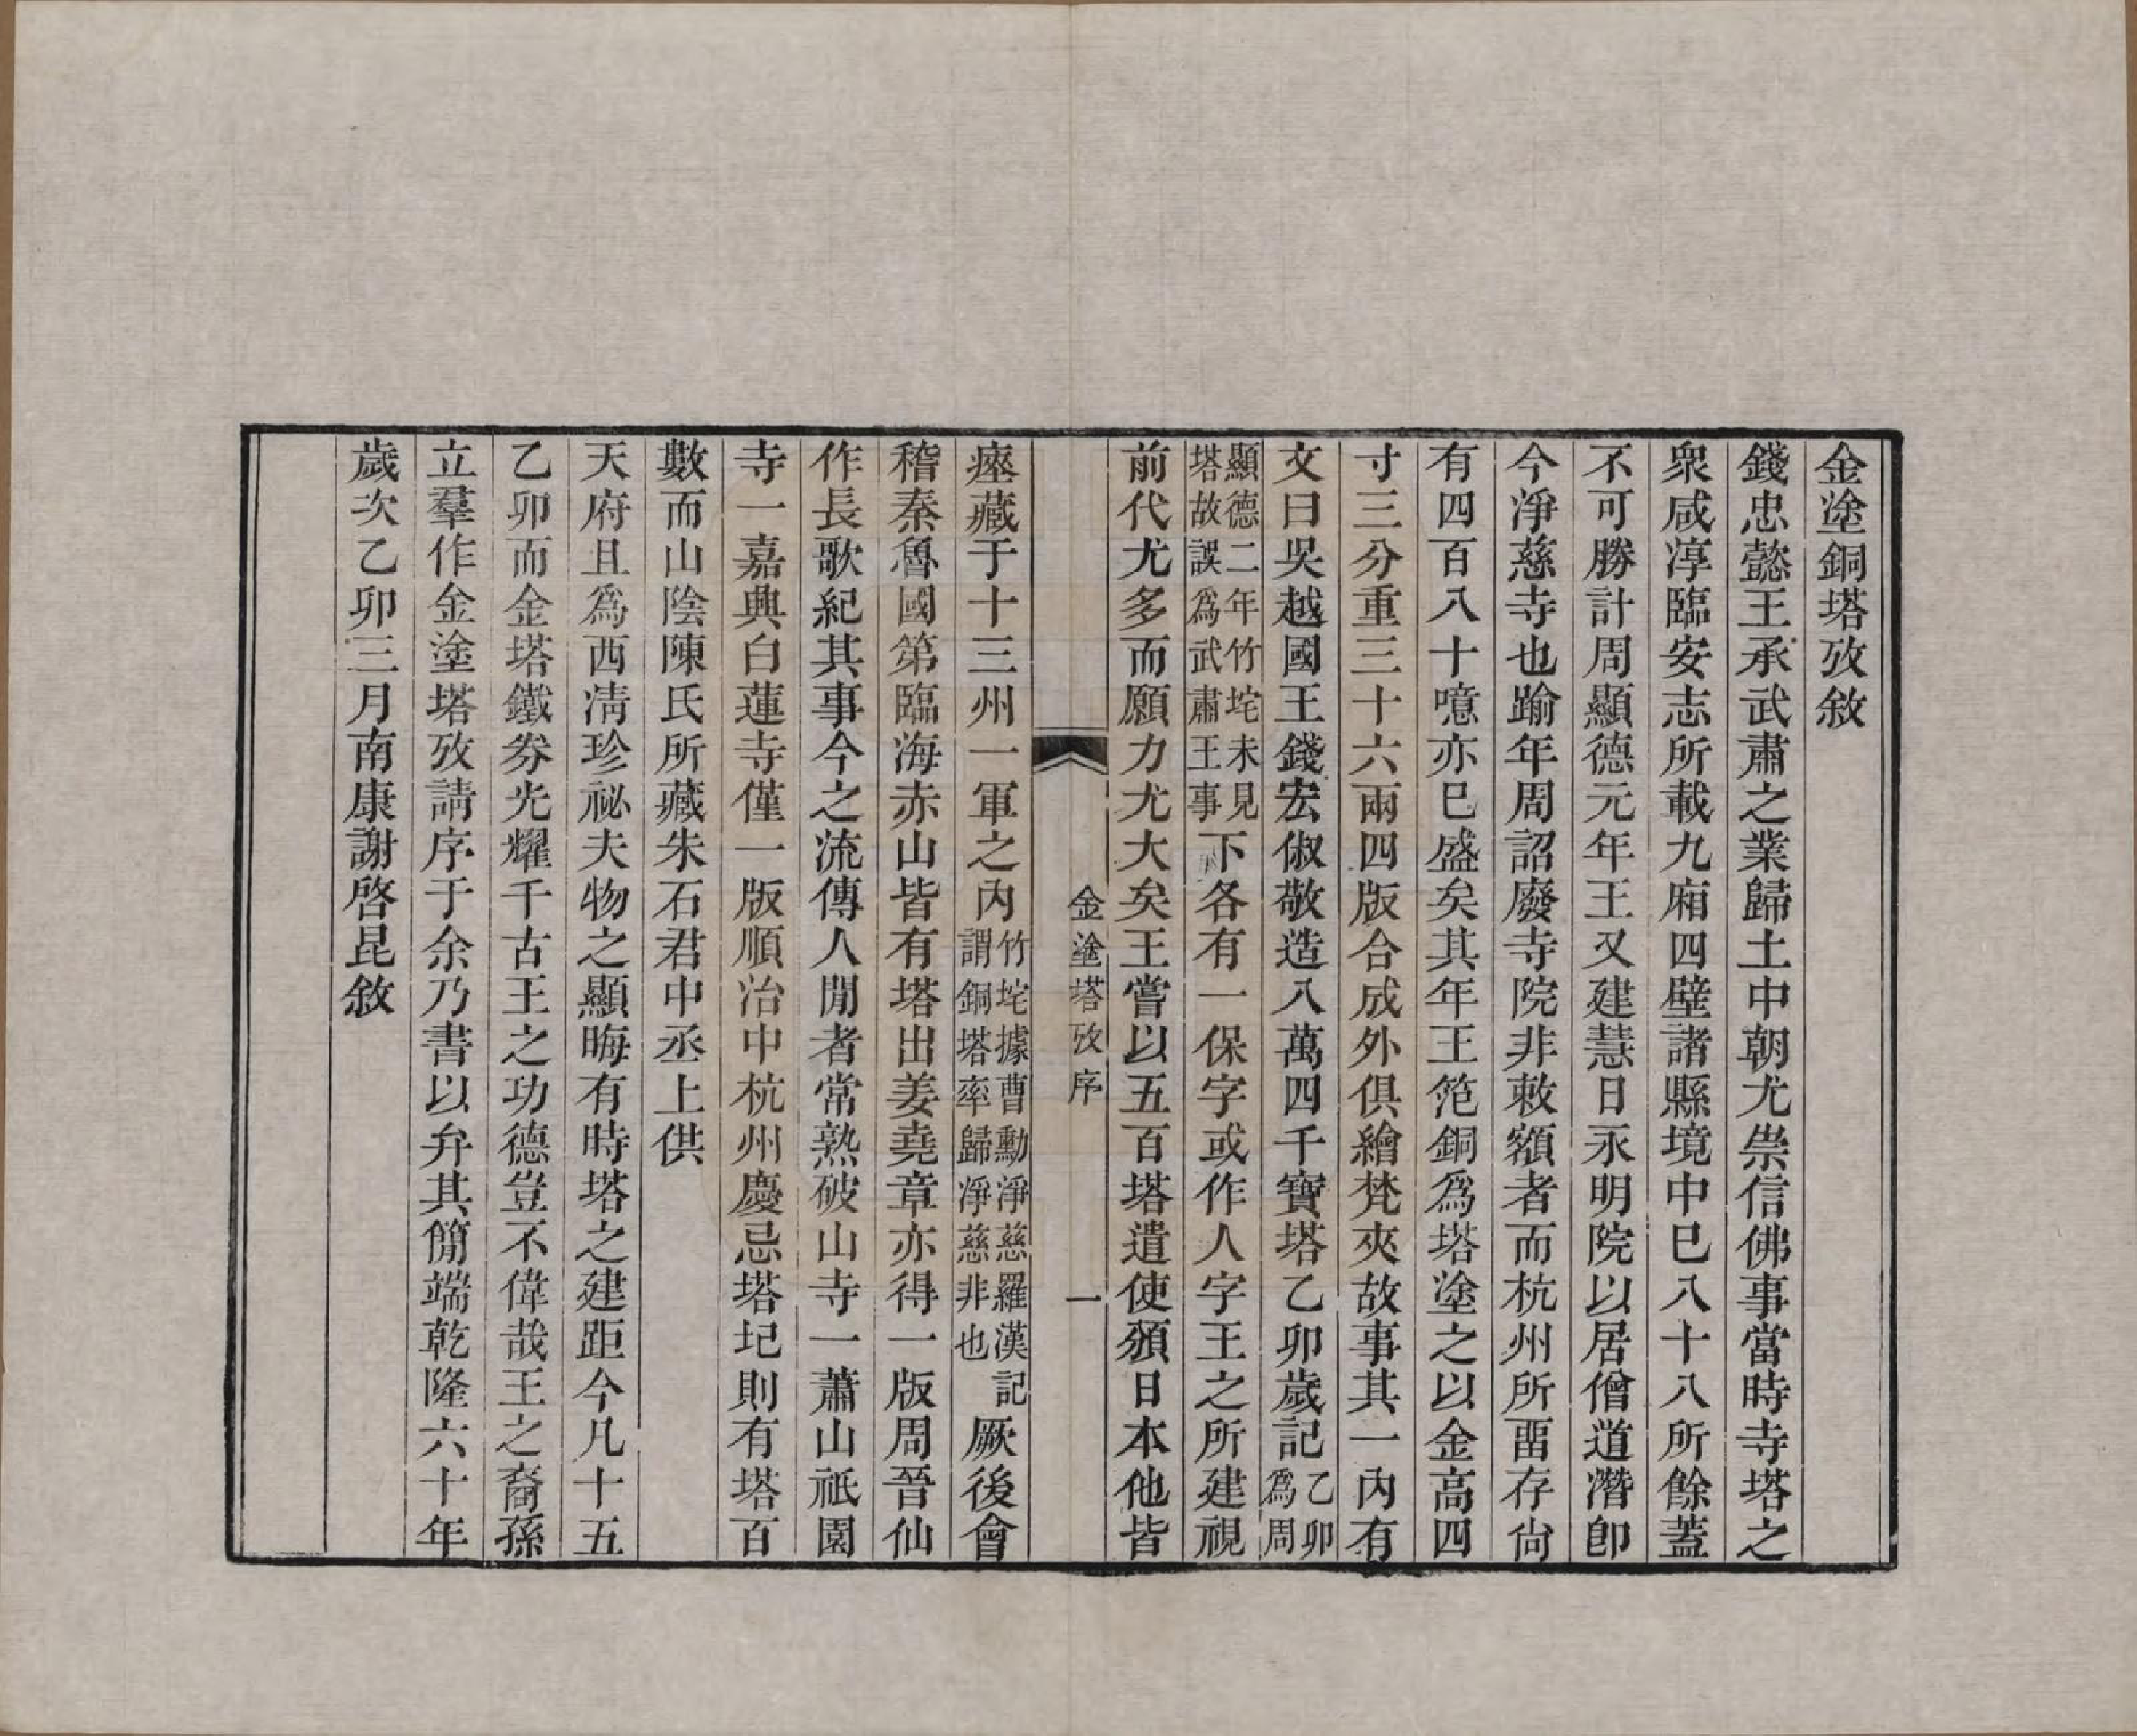 金塗銅塔攷敘
錢忠懿王承武肅之業歸土中朝尤崇信佛事當時寺塔之
衆咸淳臨安志所載九廂四壁諸縣境中巳八十八所餘蓋
不可勝計周顯德元年王又建慧日永明院以居僧道潛卽
今淨慈寺也踰年周詔廢寺院非敕額者而杭州所畱存尙
有四百八十噫亦巳盛矣其年王笵銅爲塔塗之以金高四
寸三分重三十六兩四版合成外俱繪梵夾故事其一內有
文曰吳越國王錢宏俶敬造八萬四千寶塔乙卯歲記乙卯爲周
顯德二年竹垞未見塔故誤爲武肅王事下各有一保字或作人字王之所建視
前代尤多而願力尤大矣王嘗以五百塔遣使頒日本他皆
金塗塔攷序 一
瘞藏于十三州一軍之內竹垞據曹勳淨慈羅漢記謂銅塔率歸淨慈非也厥後會
稽秦魯國第臨海赤山皆有塔出姜堯章亦得一版周晉仙
作長歌紀其事今之流傳人閒者常熟破山寺一蕭山祇園
寺一嘉興白蓮寺僅一版順治中杭州慶忌塔圮則有塔百
數而山陰陳氏所藏朱石君中丞上供
天府且爲西淸珍祕夫物之顯晦有時塔之建距今凡十五
乙卯而金塔鐵券光耀千古王之功德豈不偉哉王之裔孫
立羣作金塗塔攷請序于余乃書以弁其簡端乾隆六十年
歲次乙卯三月南康謝啓昆敘